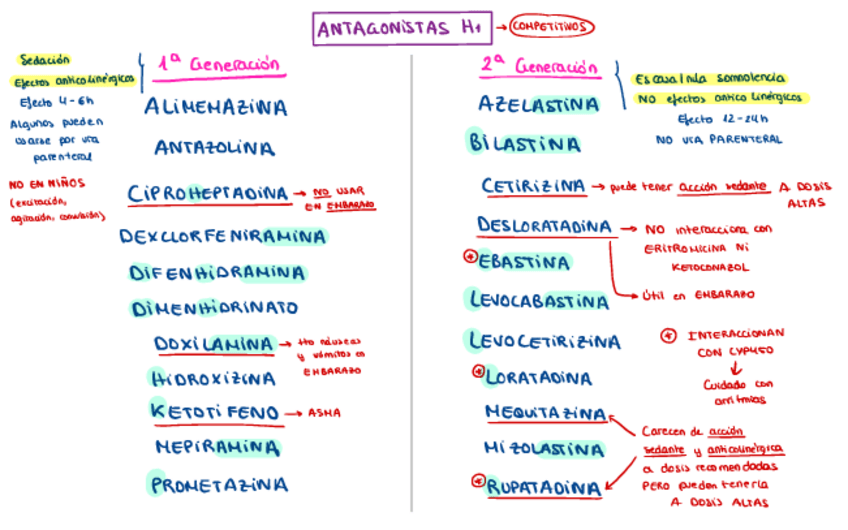 ANTAGONISTAS H1 → COMPETITIVOS
1ª Generación
Sedación
Efectos anticolinérgicos
Efecto 4-6h
Algunos pueden
usarse por vía
parenteral
NO EN NIÑOS
(excitación,
agitación, convulsión)
ALIMEMAZINA
ANTAZOLINA
CIPROHEPTADINA → NO USAR
EN EMBARAZO
DEXCLORFENIRAMINA
DIFENHIDRAMINA
DIMENHIDRINATO
DOXILAMINA → tto náuseas
y vómitos en
EMBARAZO
HIDROXIZINA
KETOTIFENO → ASMA
MEPIRAMINA
PROMETAZINA
2ª Generación
Escasa/nula somnolencia
NO efectos anticolinérgicos
Efecto 12-24h
NO VÍA PARENTERAL
AZELASTINA
BILASTINA
CETIRIZINA → puede tener acción sedante A DOSIS
ALTAS
DESLORATADINA → NO interacciona con
ERITROMICINA NI
KETOCONAZOL
→ Útil en EMBARAZO
* EBASTINA
LEVOCABASTINA
LEVOCETIRIZINA
* LORATADINA
MEQUITAZINA
MIZOLASTINA
* RUPATADINA
* INTERACCIONAN
CON CYP450
↓
Cuidado con
arritmias
Carecen de acción
sedante y anticolinérgica
a dosis recomendadas
PERO pueden tenerla
A DOSIS ALTAS